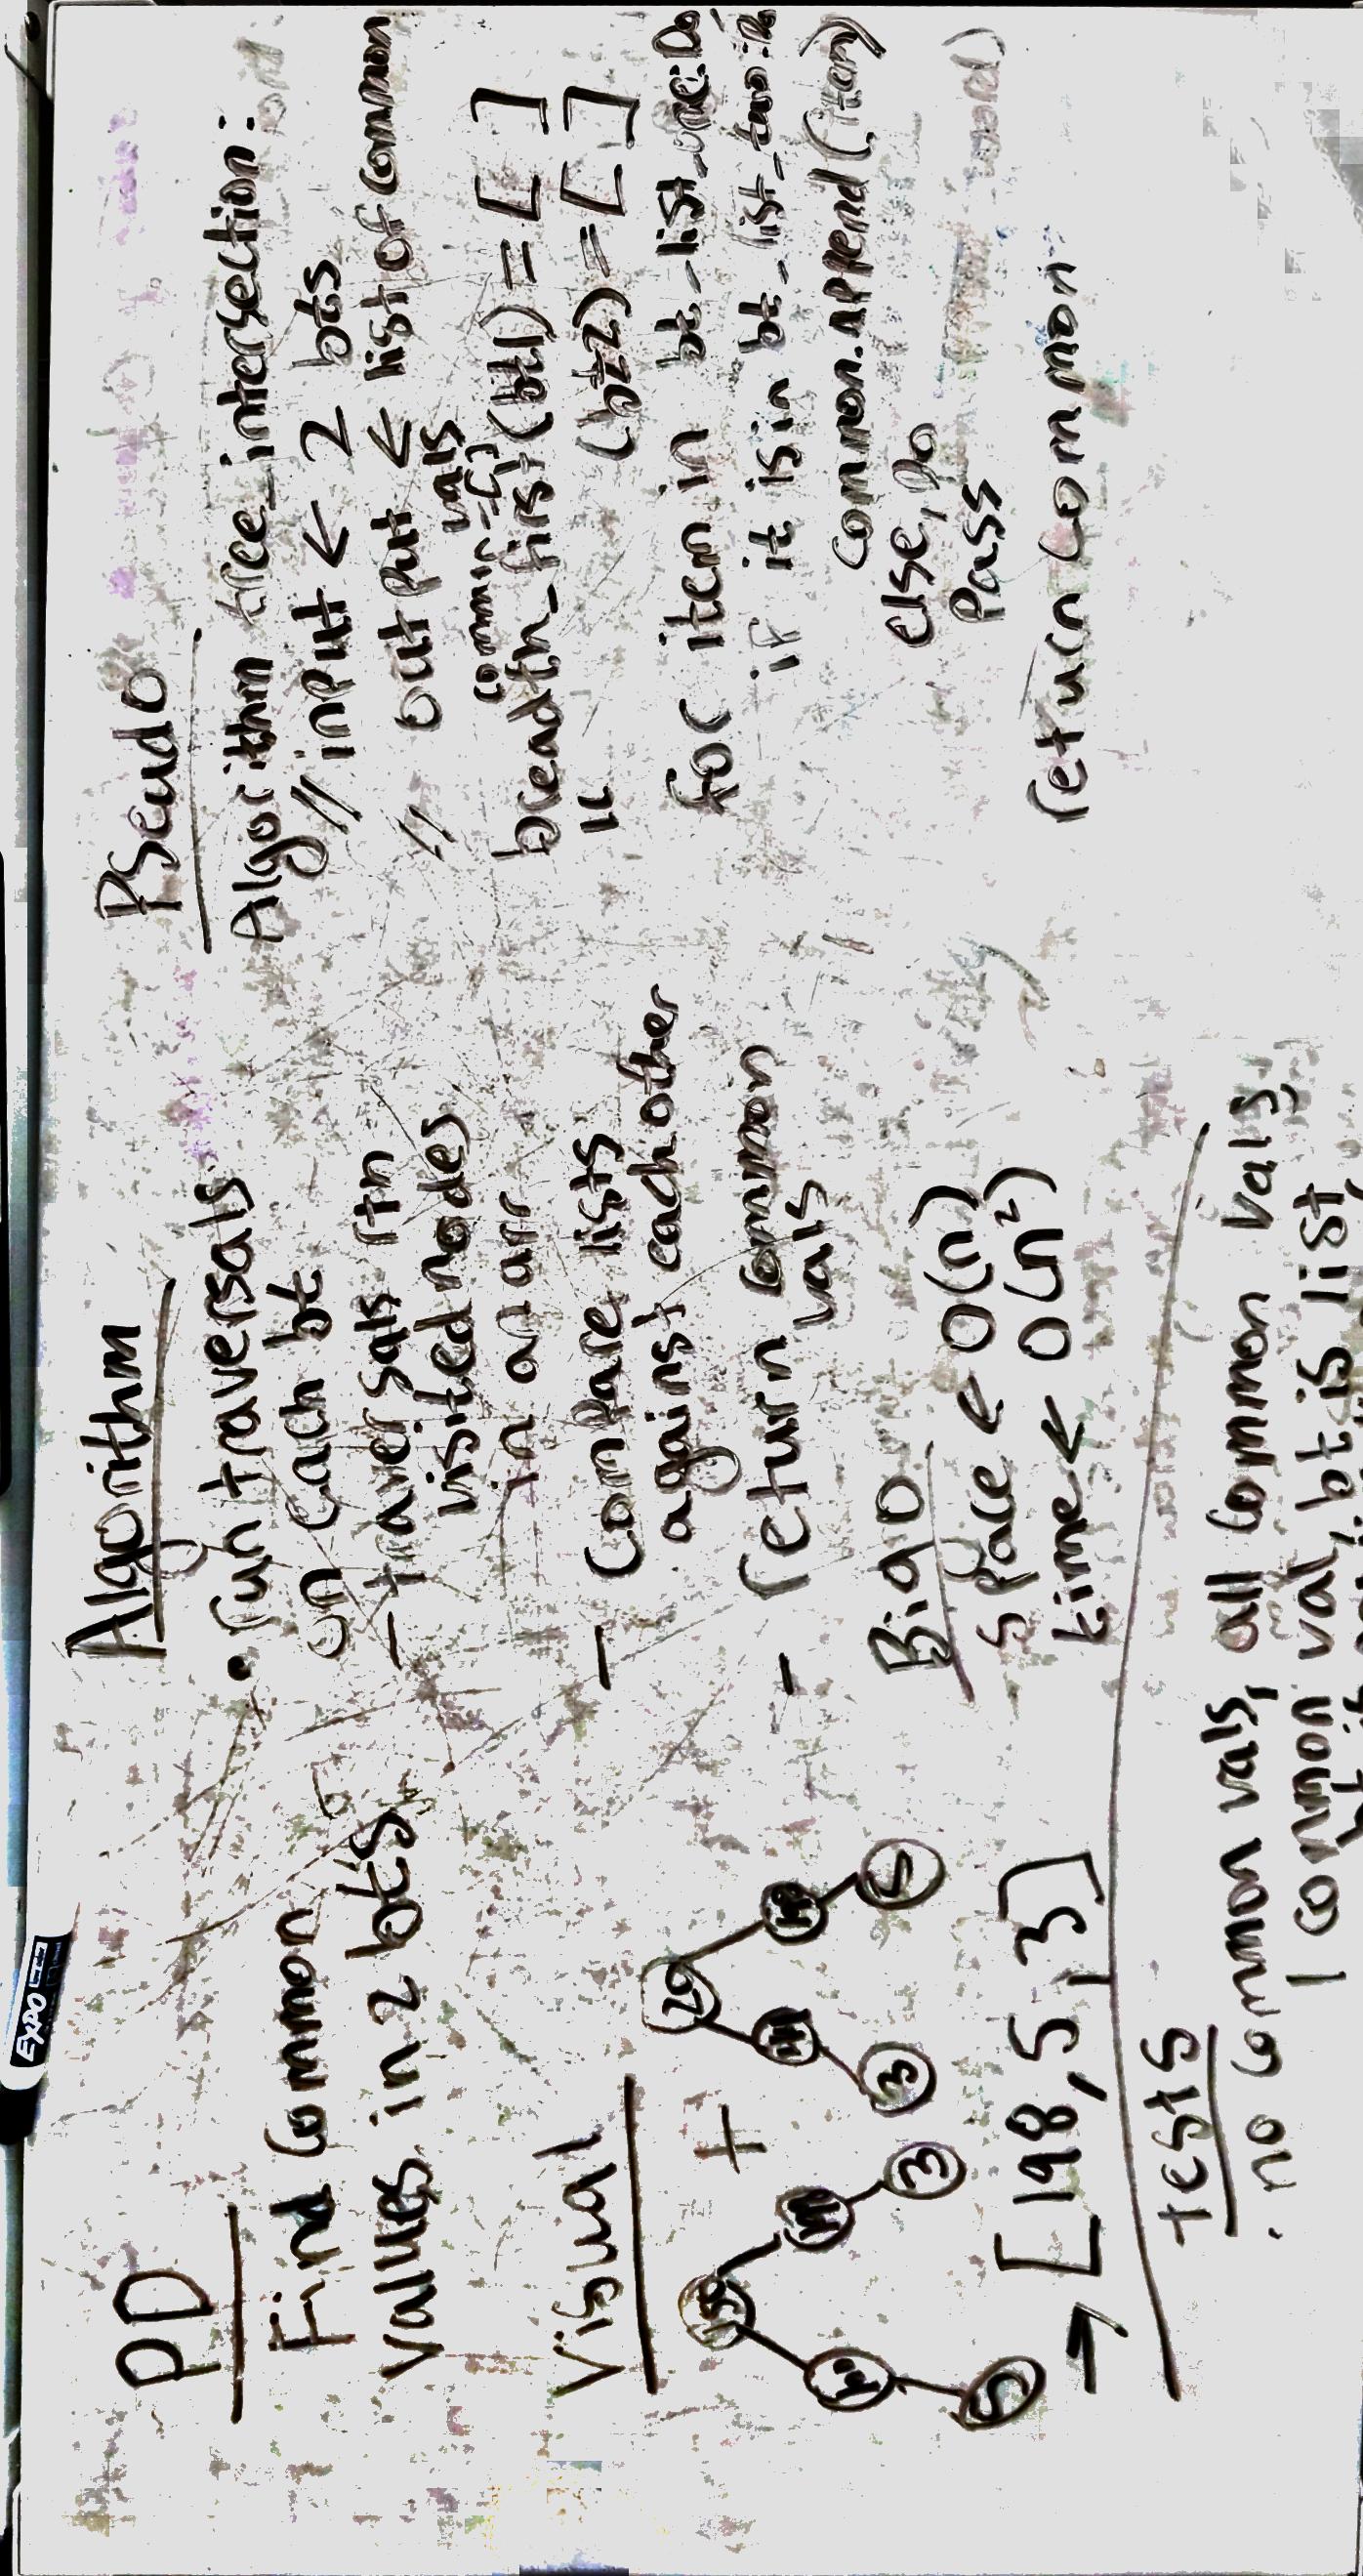 PD
Find common
values in 2 bts
Visual
+
67
3
5
3
→ [198, 5, 3]
Algorithm
• run traversals
on each bt
- traversals rtn
visited nodes
in an arr
- compare lists
against each other
- return common
vals
Big O
Space < O(n)
time < O(n²)
Pseudo
Algorithm tree_intersection:
// input < 2 bts
// output < list of common
vals
common = []
breadth_first(bt1) = [ ]
" (bt2) = [ ]
for item in bt_list_one: Do
if it is in bt_list_two: Do
common.append(item)
else, Do
Pass
return common
tests
. no common vals, all common vals
1 common val, bt is list,
EXPO